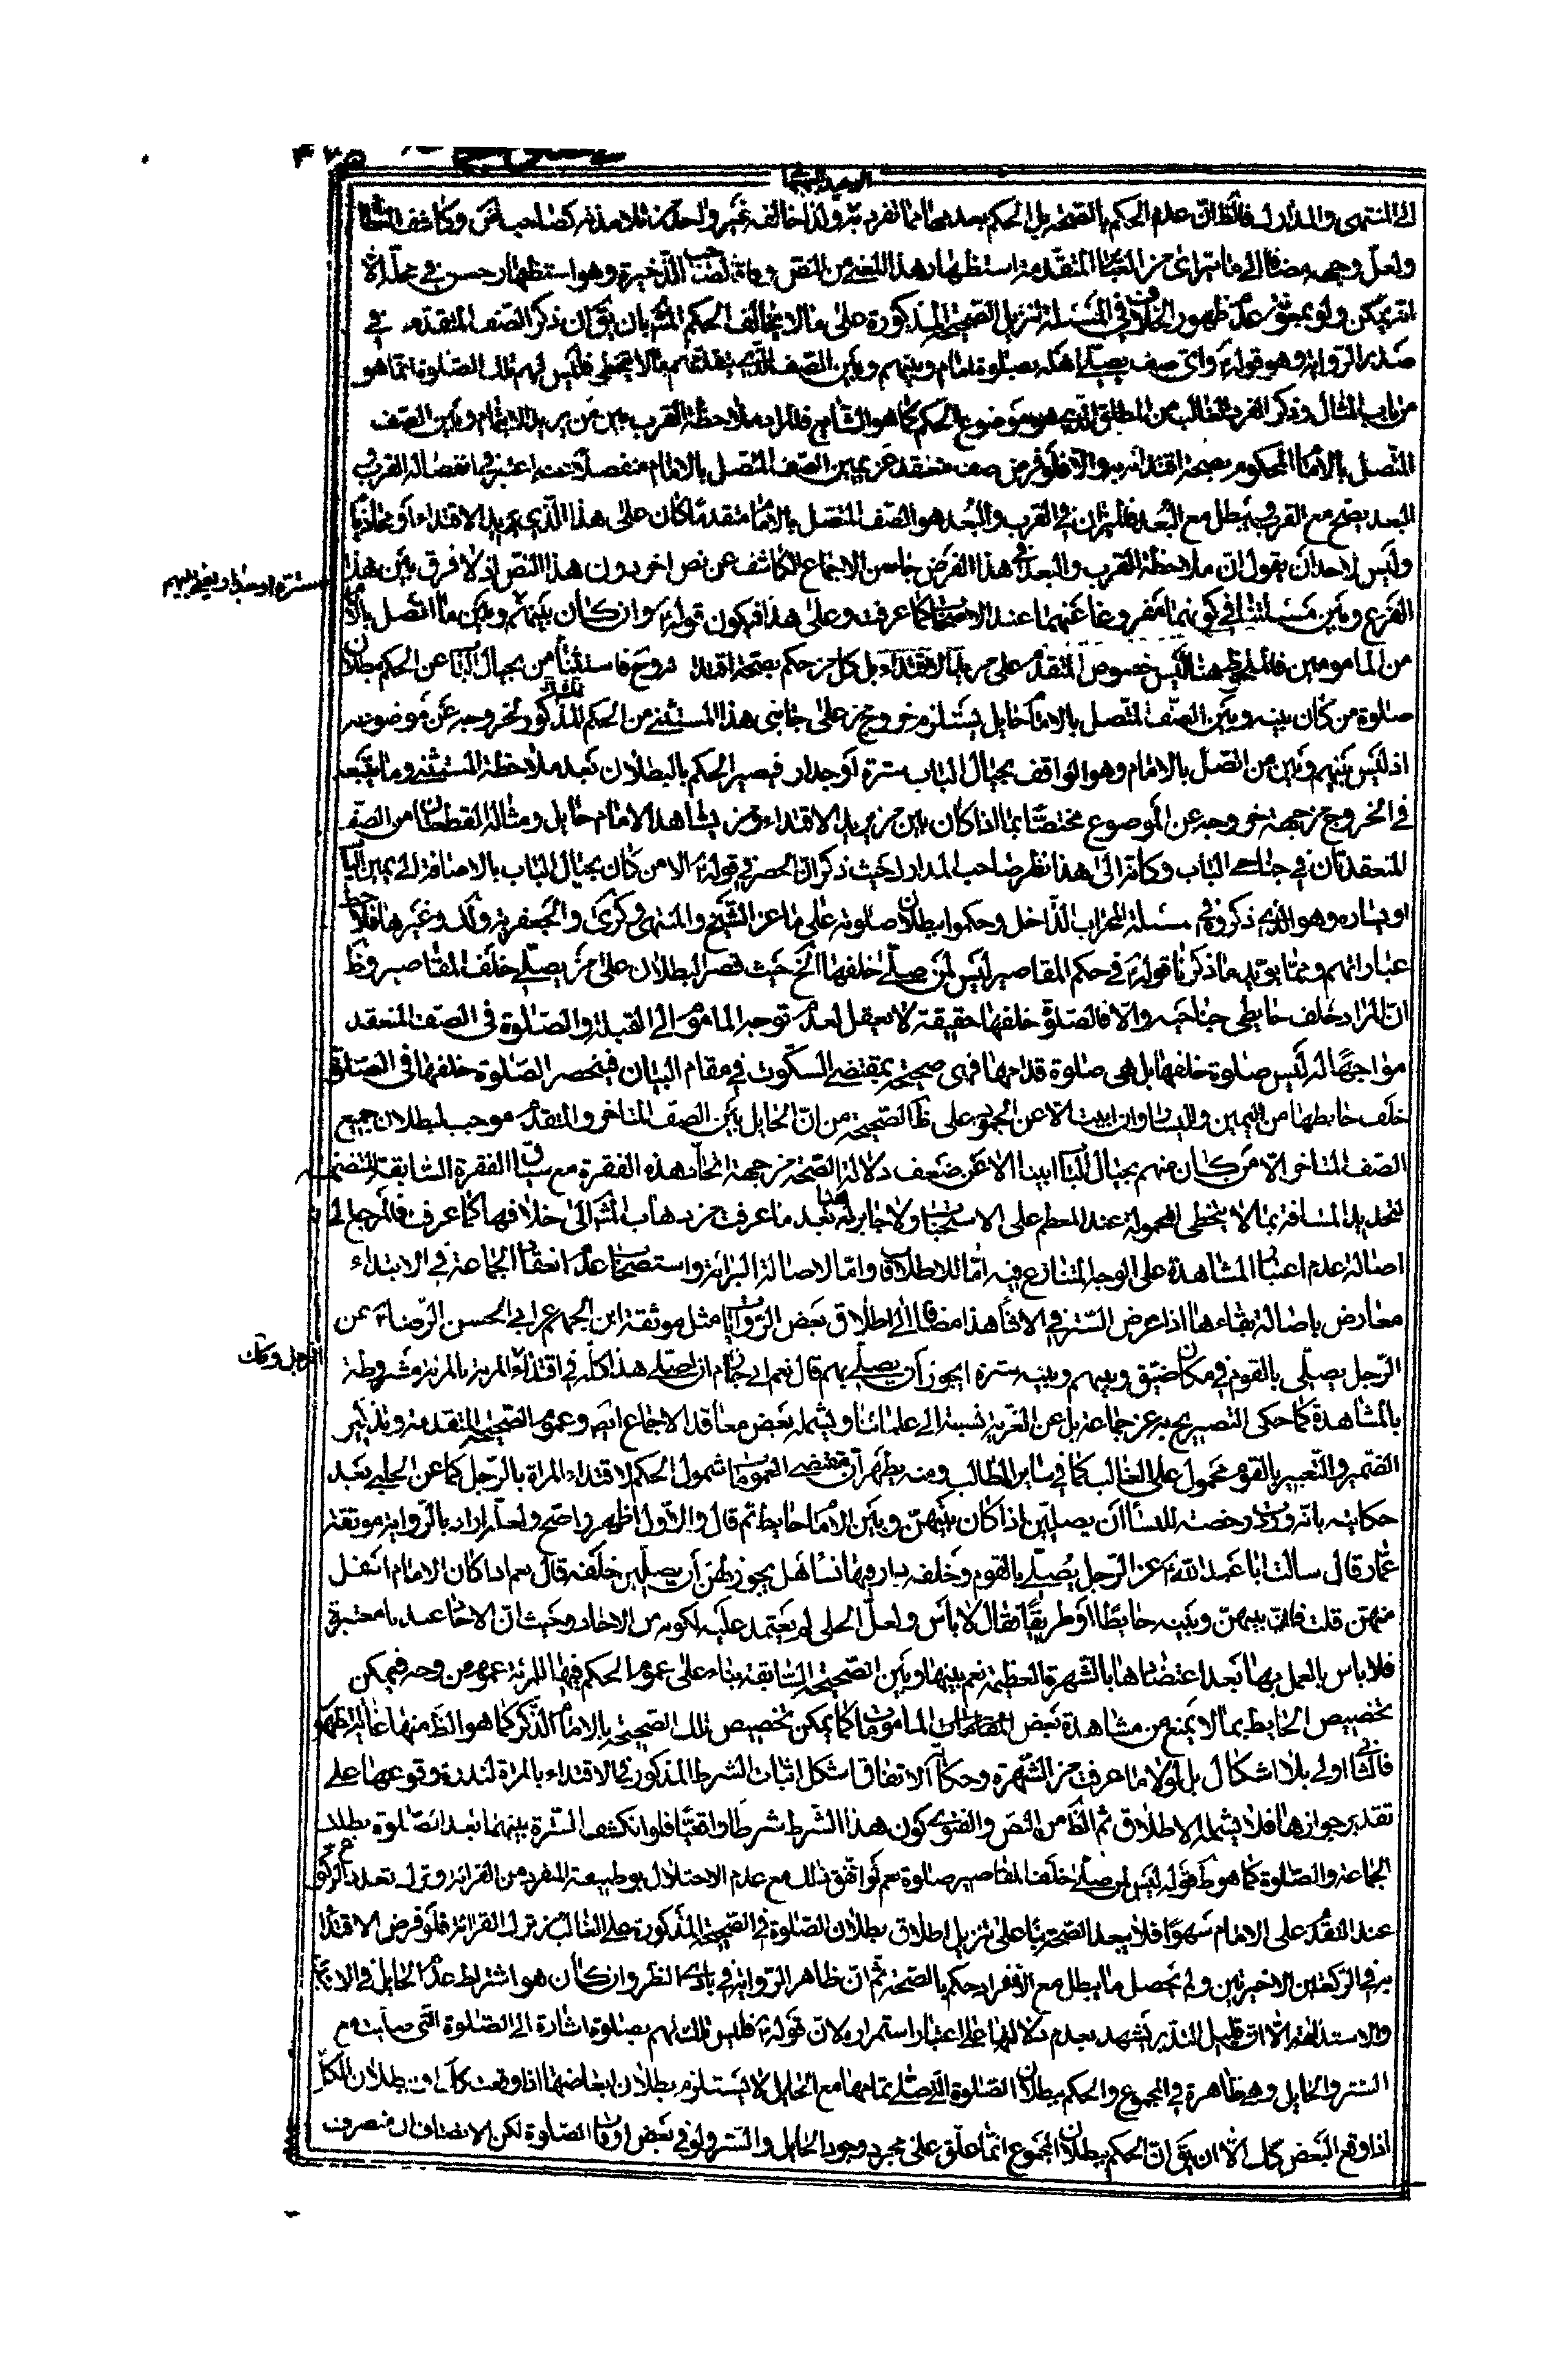 الى المنتهى والمدارك فالظ ان عدم الحكم بالصحة بل الحكم بعدمها مما تفرد به ولذا خالفه غير واحد من تلامذته كصاحب
ولعل وجهه مضافا الى ما يترائى من العبارة المتقدمة استظهار هذا المعنى من النص وفاقا لصاحب الذخيرة وهو استظهار حسن في محله الا
انه يمكن ولو بمعونة عدم ظهور الخلاف في المسئلة تنزيل الصحيحة المذكورة على ما لا يخالف الحكم المشهور بان يق ان ذكر الصف المتقدم في
صدر الرواية وهو قوله ع واى صف يصلى اهله بصلوة امام وبينهم وبين الصف الذي يتقدمهم ما لا يتخطى فليس لهم تلك الصلوة انما هو
من باب المثال وذكر الفرد الغالب من المطلق الذي هو موضوع الحكم كما هو الشايع فالمراد ملاحظة القرب بين من يريد الايتمام وبين الصف
المتصل بالامام المحكوم بصحة اقتدائه والا فلو فرض صف منعقد عن يمين الصف المتصل بالامام منفصلا عنه اعتبر في انفصاله القرب و
البعد يصح مع القرب ويبطل مع البعد فالميزان في القرب والبعد هو الصف المتصل بالامام متقدما كان على هذا الذي يريد الاقتداء او محاذيا
وليس لاحد ان يقول ان ملاحظة القرب والبعد في هذا الفرض جاء من الاجماع الكاشف عن نص اخر دون هذا النص اذ لا فرق بين هذا
الفرع وبين مسئلتنا في كونهما مفروغا عنهما عند الاصحاب كما عرفت وعلى هذا فيكون قوله ع وان كان بينهم وبين ما اتصل بالامام
سترة او جدار فليس لهم
من المامومين فالملحوظ هنا ليس خصوص المتقدم على مريد الاقتداء بل كل من حكم بصحة اقتدائه وح فاستثناء من بحيال الباب عن الحكم ببطلان
صلوة من كان بينه وبين الصف المتصل بالامام حايل يستلزم خروج من على جانبى هذا المستثنى من الحكم المذكور لخروجه عن موضوعه
اذ ليس بينهم وبين من اتصل بالامام وهو الواقف بحيال الباب سترة او جدار فيصير الحكم بالبطلان بعد ملاحظة المستثنى وما يتبعه
في الخروج من جهة خروجه عن الموضوع مختصا بما اذا كان بين من يريد الاقتداء ومن يشاهد الامام حايل ومثاله القطعتان من الصف
المنعقدتان في جناحى الباب وكانه الى هذا نظر صاحب المدارك حيث ذكر ان الحصر في قوله ع الا من كان بحيال الباب بالاضافة الى يمين الباب
او يساره وهو الذي ذكروه في مسئلة المحراب الداخل وحكموا ببطلان صلوته على ما عن الشيخ والمنتهى وكرى والجعفرية ولك وغيرها فلاحظ
عباراتهم ومما يؤيد ما ذكرنا قوله ع في حكم المقاصير ليس لمن صلى خلفها الخ حيث قصر البطلان على من يصلى خلف المقاصير وظ
ان المراد خلف حايطى جناحيه والا فالصلوة خلفها حقيقة لا يعقل لعدم توجه الماموم الى القبلة والصلوة في الصف المنعقد
مواجها له ليس صلوة خلفها بل هي صلوة قدامها فهى صحيحة بمقتضى السكوت في مقام البيان فينحصر الصلوة خلفها في الصلوة
خلف حايطها من اليمين واليسار وان ابيت الا عن الجمود على ظ الصحيحة من ان الحايل بين الصف المتاخر والمتقدم موجب لبطلان جميع
الصف المتاخر الا من كان منهم بحيال الباب ابينا الا عن ضعف دلالة الصحة من جهة اتحاد هذه الفقرة مع سياق الفقرة السابقة المتضمنة
لتحديد المسافة بما لا يتخطى المحمولة عند المعظم على الاستحباب ولا جابر له هنا بعد ما عرفت من ذهاب المشهور الى خلافها كما عرفت فالمرجع الى
اصالة عدم اعتبار المشاهدة على الوجه المتنازع فيه اما للاطلاقات واما لاصالة البرائة واستصحاب عدم انعقاد الجماعة في الابتداء
معارض باصالة بقاءها اذا عرض الستر في الاثناء هذا مضافا الى اطلاق بعض الروايات مثل موثقة ابن الجهم عن ابي الحسن الرضا ع عن
الرجل يصلى بالقوم في مكان ضيق وبينهم وبينه سترة ايجوز ان يصلى بهم قال نعم هذا كله في اقتداء المرئة بالمرئة مشروطة
الرجل وكك
بالمشاهدة كما حكى التصريح به عن جماعة بل عن الغرية نسبته الى علمائنا ويشمله بعض معاقد الاجماع ايض وعموم الصحيحة المتقدمة وتذكير
الضمير والتعبير بالقوم محمول على الغالب كما في ساير المطالب ومنه يظهر ان مقتضى العمومات شمول الحكم لاقتداء المراة بالرجل كما عن الحلى بعد
حكايته بانه وردت رخصة للنساء ان يصلين اذا كان بينهن وبين الامام حايط ثم قال والاول اظهر واصح ولعله اراد بالرواية موثقة
عمار قال سالت ابا عبد الله ع عن الرجل يصلى بالقوم وخلفه دار وفيها نساء هل يجوز لهن ان يصلين خلفه قال نعم اذا كان الامام اسفل
منهن قلت فان بينهن وبينه حايطا او طريقا فقال لا باس ولعل الحلى لم يعتمد عليه لكونه من الاحاد وحيث ان الاحاد عندنا معتبرة
فلا باس بالعمل بها بعد اعتضادها بالشهرة العظيمة نعم بينها وبين الصحيحة السابقة بناء على عموم الحكم فيها للمرئة عموم من وجه فيمكن
تخصيص الحايط بما لا يمنع من مشاهدة بعض المامومات كما يمكن تخصيص تلك الصحيحة بالامام الذكر كما هو الظ منها
فالثاني اولى بلا اشكال بل لولا ما عرفت من الشهرة وحكاية الاتفاق اشكل اثبات الشرط المذكور في الاقتداء بالمراة لندرة وقوعها على
تقدير جوازها فلا يشمله الاطلاق ثم الظ من النص والفتوى كون هذا الشرط شرطا واقعيا فلو انكشف السترة بينهما بعد الصلوة بطلت
الجماعة والصلوة كما هو ظ قوله ليس لمن صلى خلف المقاصير صلوة نعم لو اتفق ذلك مع عدم الاخلال بوظيفة المنفرد من القرائة وترك تعدد الركوع
عند التقدم على الامام سهوا فلا يبعد الصحة بناء على تنزيل اطلاق بطلان الصلوة في الصحيحة المذكورة على الغالب من ترك القرائة فلو فرض الاقتداء
به في الركعتين الاخيرتين ولم يحصل ما يبطل مع الانفراد حكم بالصحة ثم ان ظاهر الرواية في بادى النظر وان كان هو اشتراط عدم الحايل في الابتداء
والاستدامة الا ان قليل التدبر يشهد بعدم دلالتها على اعتبار استمراره لان قوله ع فليس تلك لهم بصلوة اشارة الى الصلوة التي صليت مع
الستر والحايل وهي ظاهرة في المجموع والحكم ببطلان الصلوة التي صلى تمامها مع الحايل لا يستلزم بطلان ابعاضها اذا وقعت كك
اذا وقع البعض كك الا ان يق ان الحكم ببطلان المجموع انما علق على مجرد وجود الحايل والستر ولو في بعض اوقات الصلوة لكن الانصاف ان منصرف